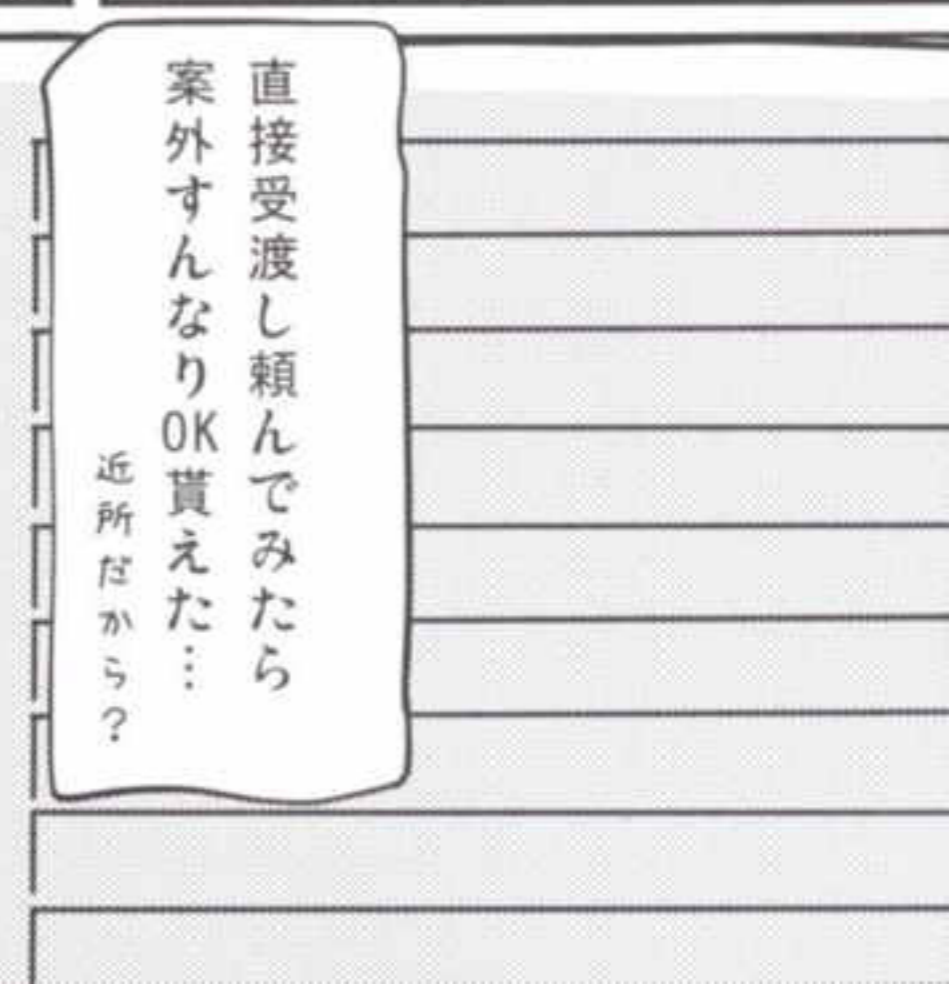 直接受渡し頼んでみたら
案外すんなりOK貰えた…
近所だから？